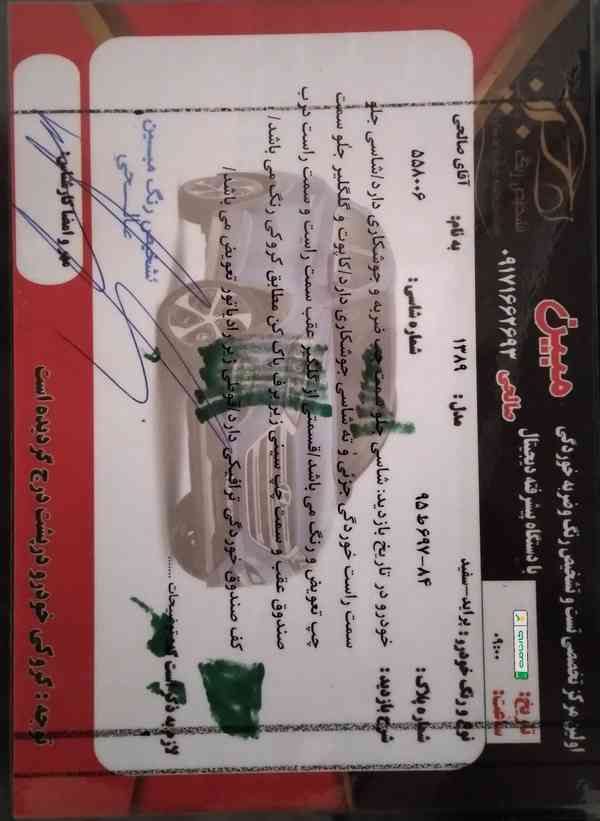 مبین
تشخیص رنگ
اولین مرکز تخصصی تست و تشخیص رنگ و ضربه خوردگی
با دستگاه پیشرفته دیجیتال
صالحی ۰۹۱۷۱۶۶۷۶۹۳
تاریخ:
ساعت: ۰۹:۰۰
به نام: آقای صالحی
مدل: ۱۳۸۹
نوع و رنگ خودرو: پراید-سفید
شماره شاسی: ۵۵۸۰۰۶
شماره پلاک: ۸۴-۶۹۷ط۹۵
شرح بازدید:
خودرو در تاریخ بازدید: شاسی جلو سمت چپ ضربه و جوشکاری دارد/شاسی جلو
سمت راست خوردگی جزئی و ته شاسی جوشکاری دارد/کاپوت و گلگیر جلو سمت
چپ تعویض و رنگ می باشد/قسمتی از گلگیر عقب سمت راست و سمت راست درب
صندوق عقب و سمت چپ سینی زیر برف پاک کن مطابق کروکی رنگ می باشد/
کف صندوق خوردگی ترافیکی دارد/تونلی زیر رادیاتور تعویض می باشد/
لازم به ذکر است که توضیحات ......
تشخیص رنگ مبین
صالحی
مهر و امضا کارشناس:
توجه: کروکی خودرو در پشت درج گردیده است